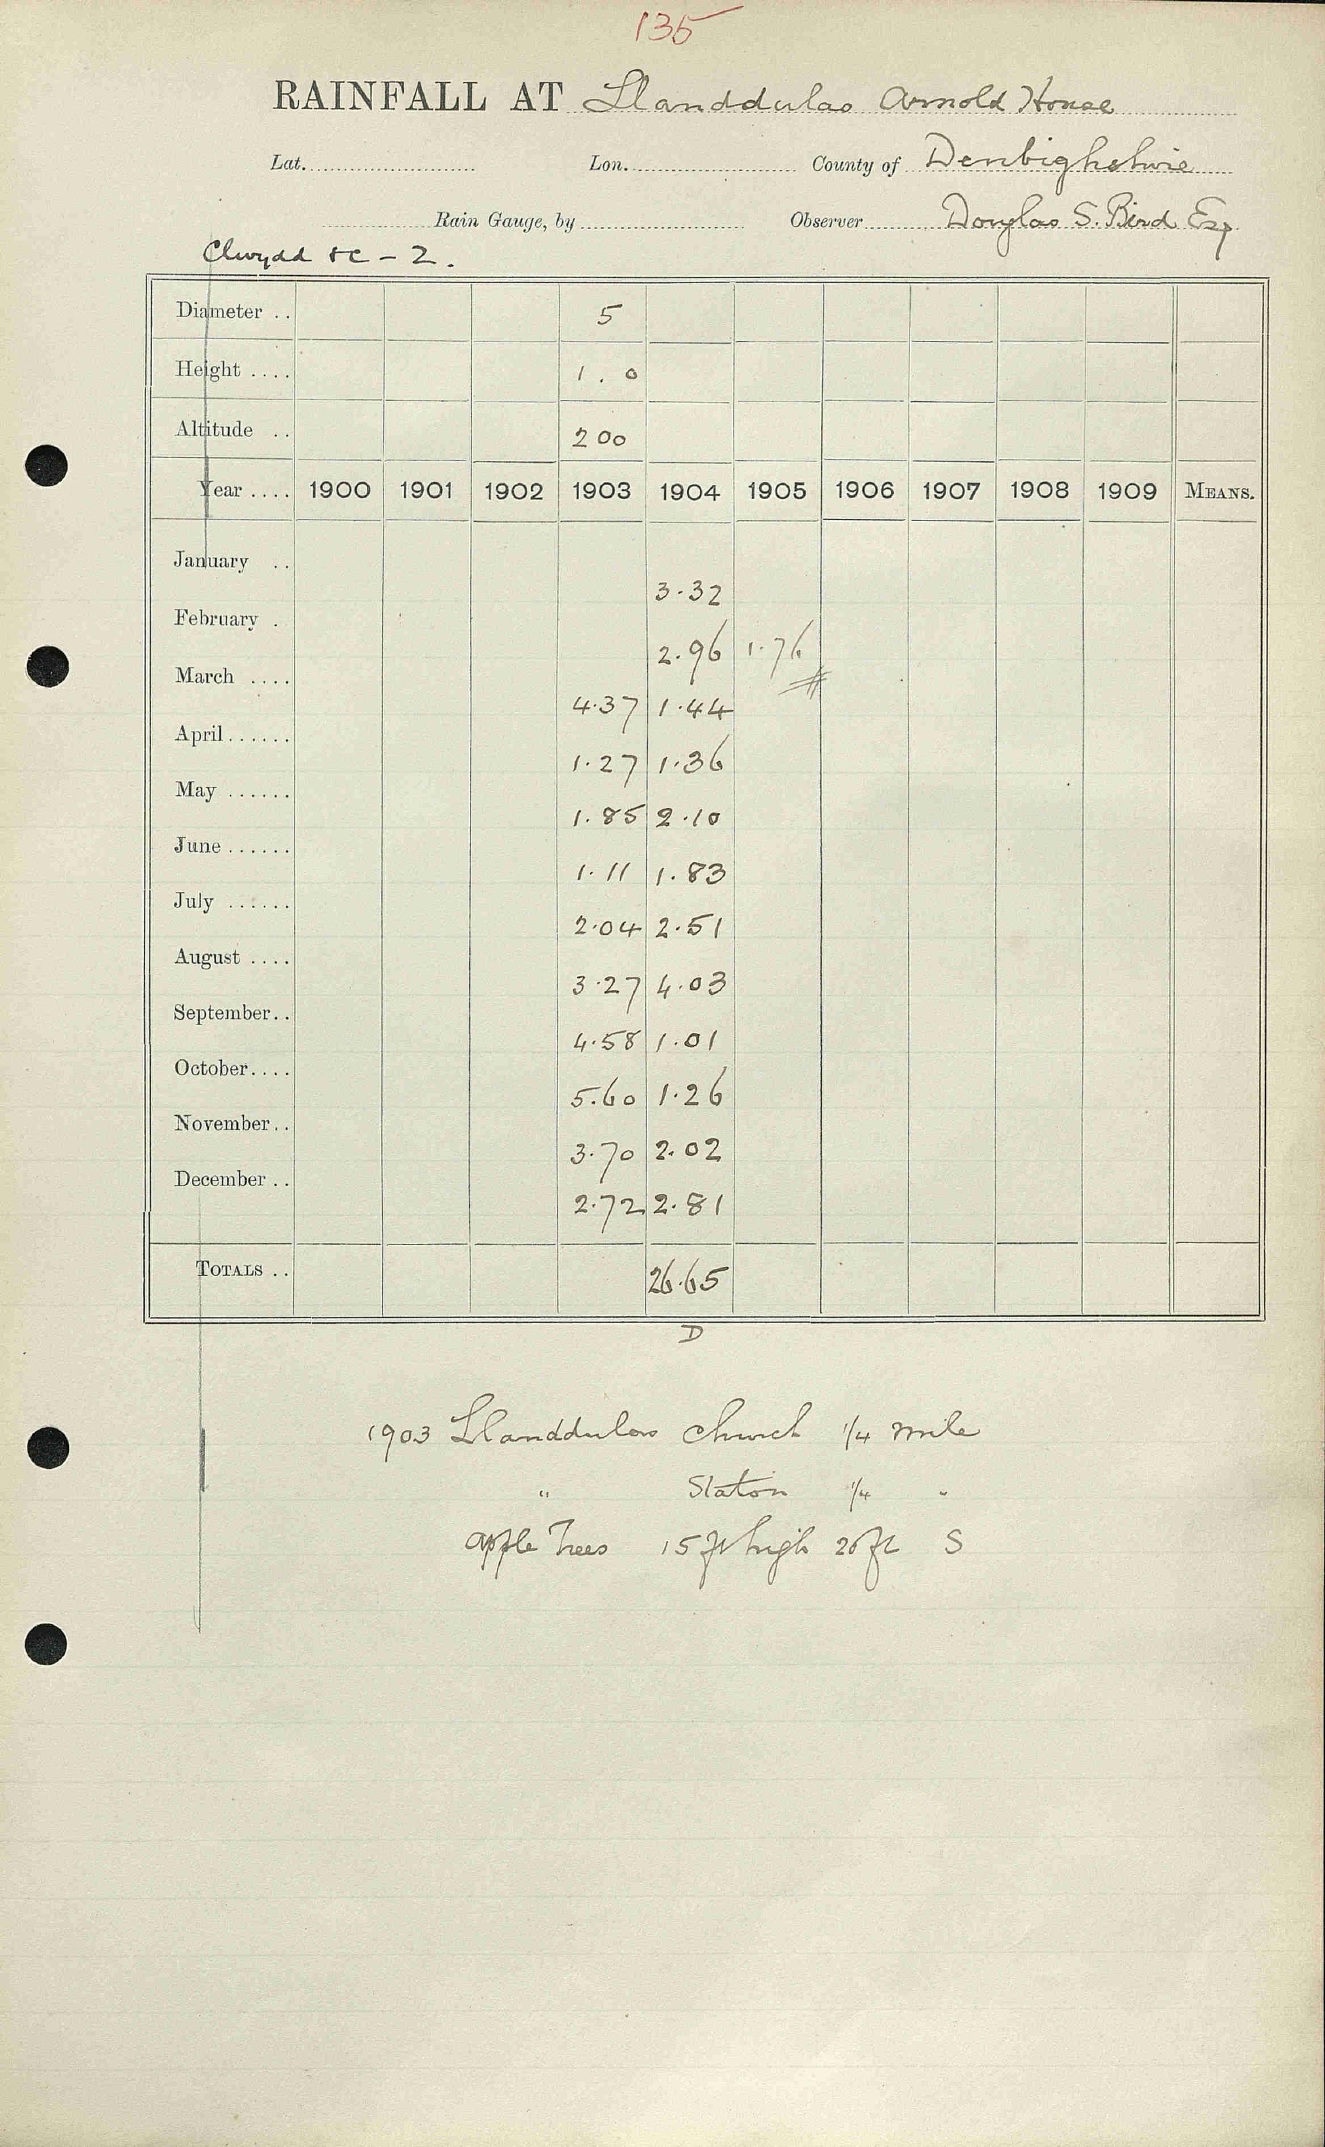 135
RAINFALL AT Llanddulas Arnold House
Lat. Lon. County of Denbighshire
Rain Gauge, by Observer Douglas S. Bird Esq
Clwydd &c - 2.
Diameter .. 5
Height .... 1.0
Altitude .. 200
Year .... 1900 1901 1902 1903 1904 1905 1906 1907 1908 1909 MEANS.
January .. 3.32
February . 2.96 1.76
March .... 4.37 1.44
April...... 1.27 1.36
May ...... 1.85 2.10
June ...... 1.11 1.83
July ...... 2.04 2.51
August .... 3.27 4.03
September.. 4.58 1.01
October.... 5.60 1.26
November.. 3.70 2.02
December .. 2.72 2.81
TOTALS .. 26.65
D
1903 Llanddulas Church 1/4 mile
" Station 1/4 "
apple Trees 15 ft high 20 ft S